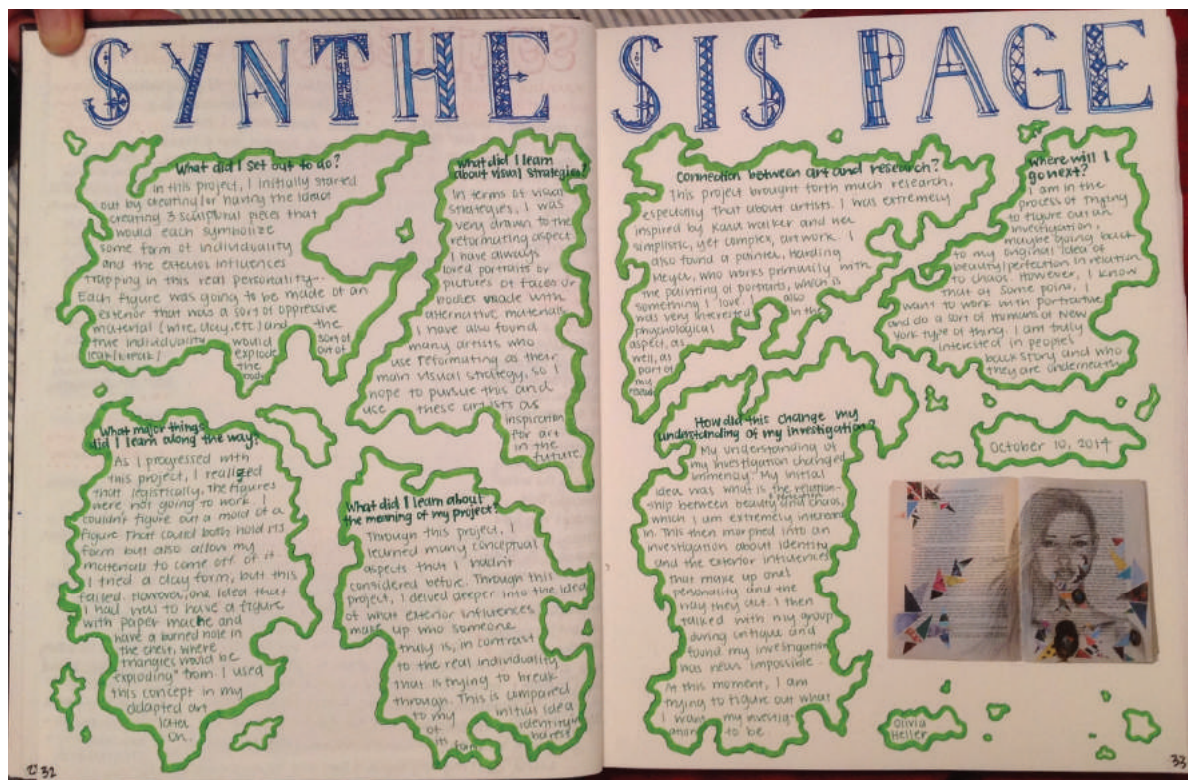 SYNTHESIS PAGE
What did I set out to do?
In this project, I initially started
out by creating/or having the idea of
creating 3 sculptural pieces that
would each symbolize
some form of individuality
and the exterior influences
trapping in this real personality.
Each figure was going to be made of an
exterior that was a sort of oppressive
material (wire, clay, etc) and the
true individuality would sort of
leak/break/ explode out of
the
body
What did I learn
about visual strategies?
In terms of visual
strategies, I was
very drawn to the
reformating aspect
I have always
loved portraits or
pictures of faces or
bodies made with
alternative materials
I have also found
many artists who
use reformating as their
main visual strategy, so I
hope to pursue this and
use these artists as
inspiration
for art
in the
future.
What major things
did I learn along the way?
As I progressed with
this project, I realized
that logistically, the figures
were not going to work. I
couldn't figure out a mold of a
figure that could both hold its
form but also allow my
materials to come off of it
I tried a clay form, but this
failed. However, one idea that
I had was to have a figure
with paper mache and
have a burned hole in
the chest, where
triangles would be
"exploding" from. I used
this concept in my
adapted art
later
on.
What did I learn about
the meaning of my project?
Through this project, I
learned many conceptual
aspects that I hadn't
considered before. Through this
project, I delved deeper into the idea
of what exterior influences
make up who someone
truly is, in contrast
to the real individuality
that is trying to break
through. This is compared
to my initial idea
of identity
its
Connection between art and research?
This project brought forth much research,
especially that about artists. I was extremely
inspired by Kara Walker and her
simplistic, yet complex, artwork. I
also found a painter, Harding
Meyer, who works primarily with
the painting of portraits, which is
something I love. I also
was very interested in the
phychological
aspect, as
well, as
part of
my
Where will I
go next?
I am in the
process of trying
to figure out an
investigation,
maybe going back
to my original idea of
beauty/perfection in relation
to chaos. However, I know
that at some point, I
want to work with portraiture
and do a sort of Humans of New
York type of thing. I am truly
interested in people's
back story and who
they are underneath
How did this change my
understanding of my investigation?
My understanding of
my investigation changed
My initial
idea was what is the relation-
ship between beauty and chaos,
which I am extremely interested
in. This then morphed into an
investigation about identity
and the exterior influences
that make up one's
personality and the
way they act. I then
talked with my group
during critique and
found my investigation
was near impossible.
At this moment, I am
trying to figure out what
I want my investig-
ation to be.
October 10, 2014
Olivia
Heller
32
33